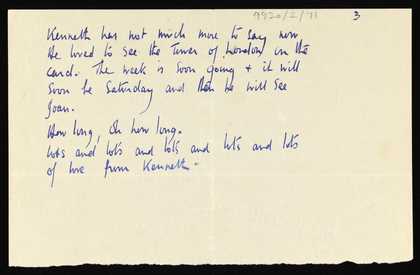 9920/2/71
3
Kenneth has not much more to say now
He loved to see the Tower of London in the
card. The week is soon going + it will
soon be Saturday and then he will see
Joan.
How long, Oh how long.
Lots and lots and lots and lots and lots
of love from Kenneth.